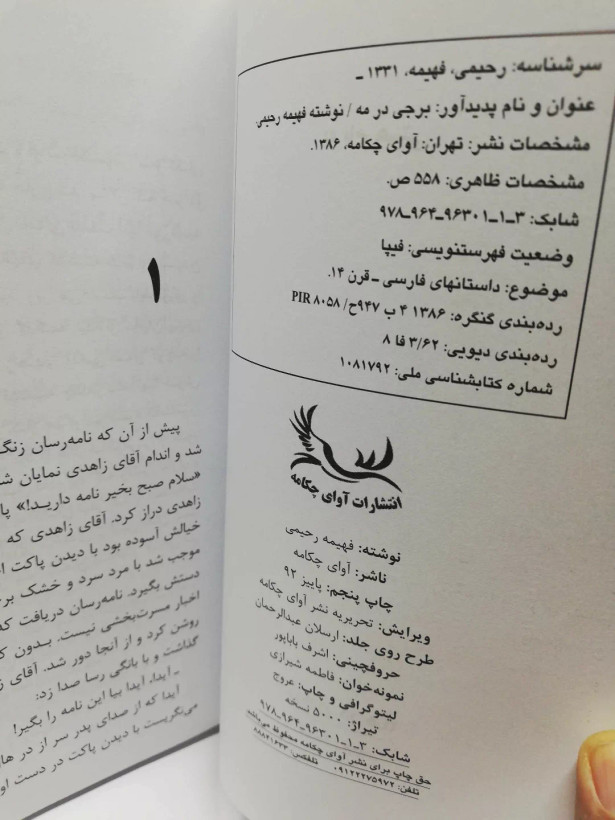 سرشناسه: رحیمی، فهیمه، ۱۳۳۱ ـ
عنوان و نام پدیدآور: برجی در مه / نوشته فهیمه رحیمی.
مشخصات نشر: تهران: آوای چکامه، ۱۳۸۶.
مشخصات ظاهری: ۵۵۸ ص.
شابک: ۳ـ۱ـ۹۶۳۰۱ـ۹۶۴ـ۹۷۸
وضعیت فهرستنویسی: فیپا
موضوع: داستانهای فارسی ـ قرن ۱۴.
رده‌بندی کنگره: ۱۳۸۶ ۴ ب ۹۴۷ح/ PIR ۸۰۵۸
رده‌بندی دیویی: ۳/۶۲ فا ۸
شماره کتابشناسی ملی: ۱۰۸۱۷۹۲
انتشارات آوای چکامه
نوشته: فهیمه رحیمی
ناشر: آوای چکامه
چاپ پنجم: پاییز ۹۲
ویرایش: تحریریه نشر آوای چکامه
طرح روی جلد: ارسلان عبدالرحمان
حروفچینی: اشرف باباپور
نمونه‌خوان: فاطمه شیرازی
لیتوگرافی و چاپ: عروج
تیراژ: ۵۰۰۰ نسخه
شابک: ۳ـ۱ـ۹۶۳۰۱ـ۹۶۴ـ۹۷۸
حق چاپ برای نشر آوای چکامه محفوظ می‌باشد
تلفن: ۰۹۱۲۲۲۷۵۹۷۲ تلفکس: ۸۸۸۴۱۶۳۳
۱
پیش از آن که نامه‌رسان زنگ
شد و اندام آقای زاهدی نمایان ش
«سلام صبح بخیر نامه دارید!» پا
زاهدی دراز کرد. آقای زاهدی که
خیالش آسوده بود با دیدن پاکت ا
موجب شد با مرد سرد و خشک بر
دستش بگیرد. نامه‌رسان دریافت که
اخبار مسرت‌بخشی نیست. بدون ک
روشن کرد و از آنجا دور شد. آقای ز
گذاشت و با بانگی رسا صدا زد:
ـ آیدا، آیدا بیا این نامه را بگیر!
آیدا که از صدای پدر سر از در ها
می‌نگریست با دیدن پاکت در دست او